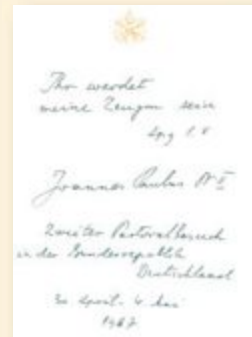 Ihr werdet
meine Zeugen sein
Apg 1.8
Joannes Paulus PP II
Zweiter Pastoralbesuch
in der Bundesrepublik
Deutschland
30 April - 4 Mai
1987